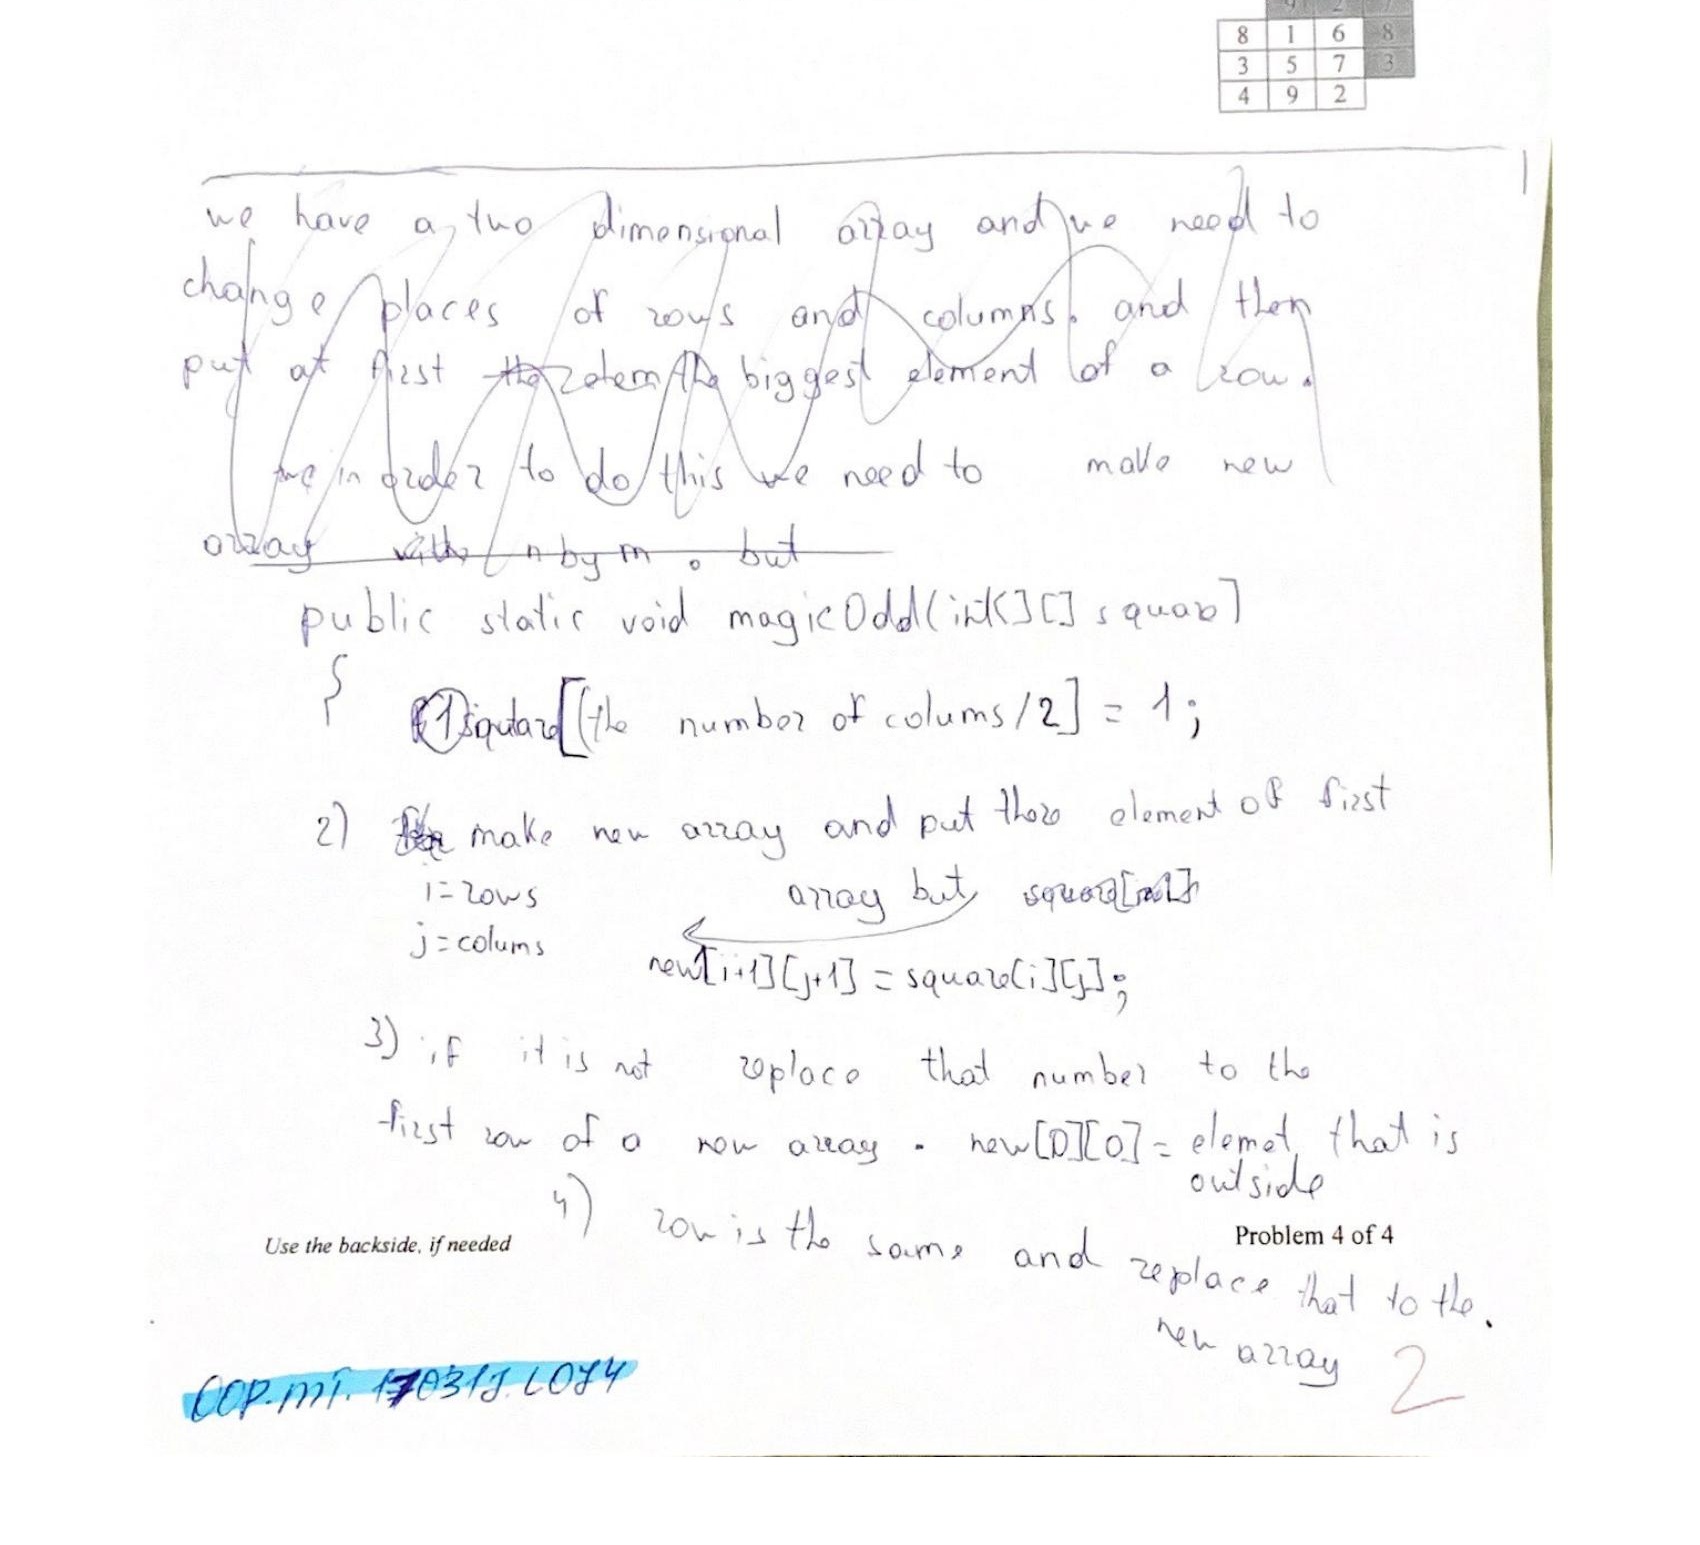 9 2 7
8 1 6 8
3 5 7 3
4 9 2
we have a two dimensional array and we need to
change places of rows and columns. and then
put at first the biggest element of a row.
in order to do this we need to make new
array with n by m. but
public static void magicOdd(int[][] square]
{
1) square[(the number of colums/2] = 1;
2) make new array and put there element of first
i=rows
array but
j=colums
new[i+1][j+1] = square[i][j];
3) if it is not replace that number to the
first row of a new array. new[0][0]= elemet that is
outside
4) row is the same and replace that to the.
new array
Use the backside, if needed
Problem 4 of 4
2